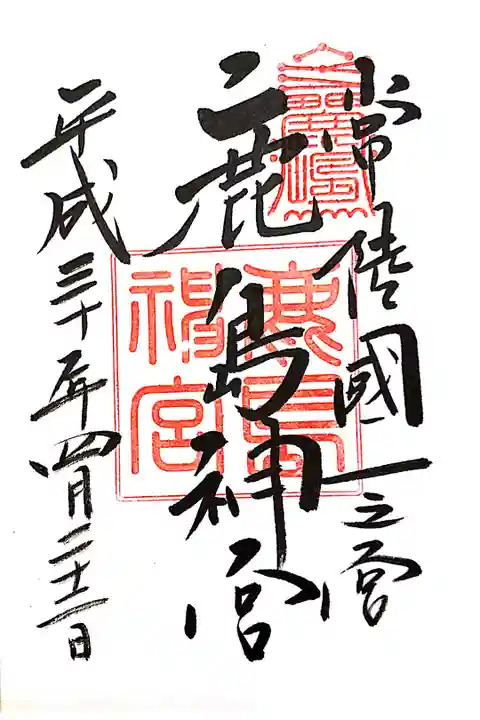 常陸國一之宮
鹿島神宮
平成三十年四月二十二日
鹿島神宮